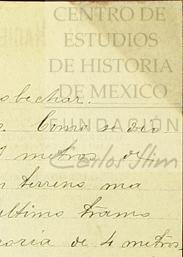 CENTRO DE
ESTUDIOS
DE HISTORIA
DE MEXICO
FUNDACIÓN
Carlos Slim
echar.
Como se vio
metros de
terreno ma
último tramo
4 metros